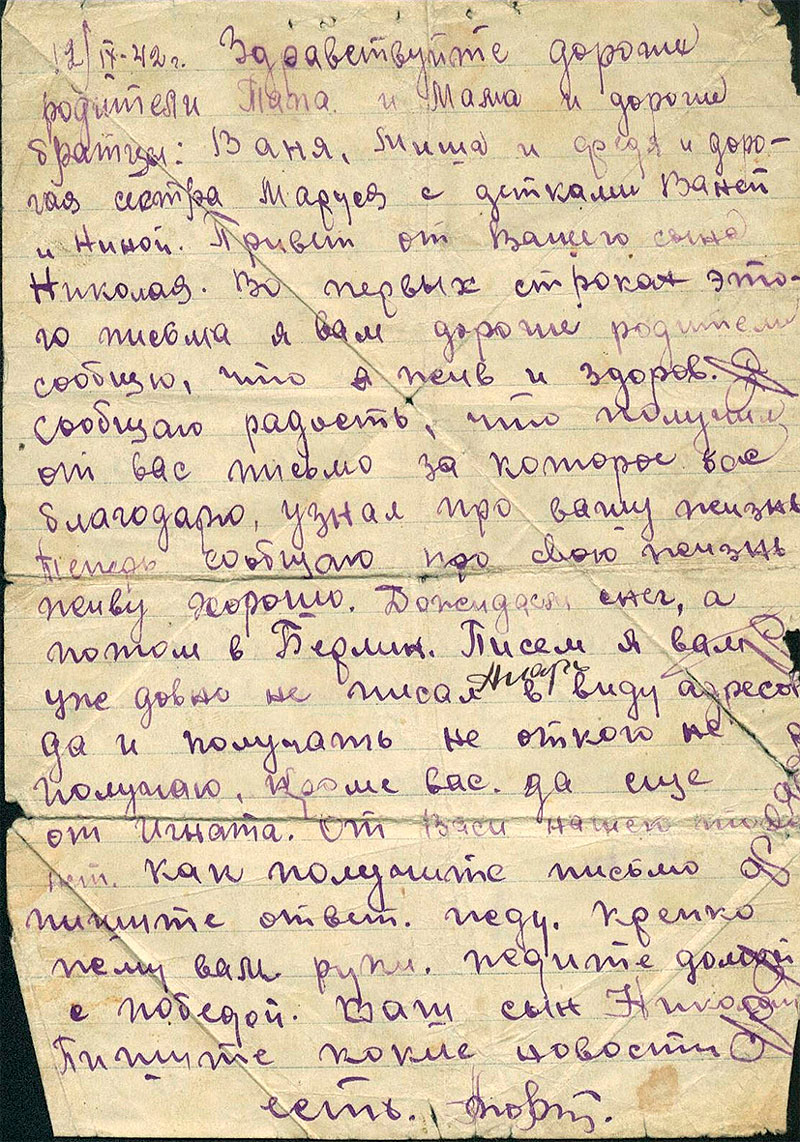 12/IX-42 г. Здравствуйте дорогие
родители Папа и Мама и дорогие
братцы: Ваня, Миша и Федя и доро-
гая сестра Маруся с детками Ваней
и Ниной. Привет от Вашего сына
Николая. Во первых строках это-
го письма я вам дорогие родители
сообщю, что я жив и здоров.
Сообщаю радость, что получил
от вас письмо за которое вас
благодарю, узнал про вашу жизнь
Теперь сообщаю про свою жизнь
живу хорошо. Дожидаем снег, а
потом в Берлин. Писем я вам
уже довно не писал в виду адресов
да и получать не откого не
получаю, кроме вас. да еще
от Игната. От Васи нашего тоже
нет. Как получите письмо
пишите ответ. жду. Крепко
жму вам руки. ждите домой
с победой. Ваш сын Николай
Пишите какие новости
есть.